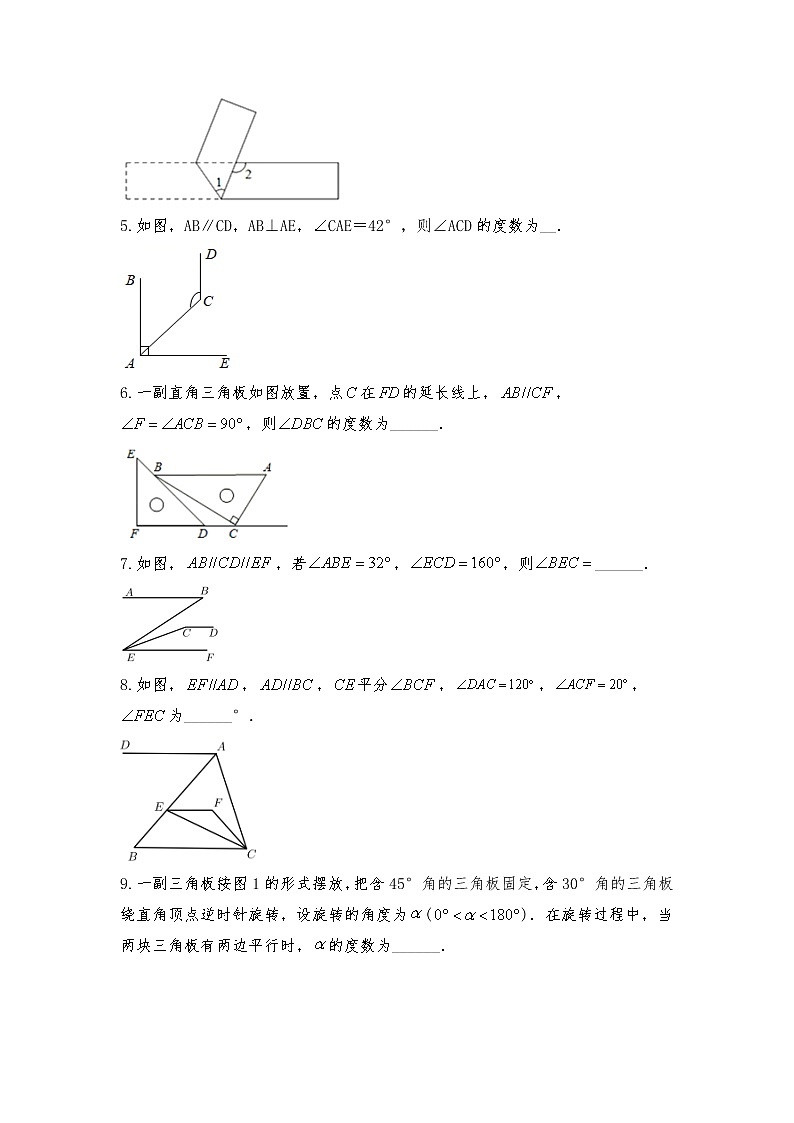 1
2
5.如图，AB∥CD，AB⊥AE，∠CAE＝42°，则∠ACD的度数为__．
D
B
C
A
E
6.一副直角三角板如图放置，点C在FD的延长线上，AB//CF，
∠F=∠ACB=90°，则∠DBC的度数为______．
E
B
A
F
D
C
7.如图，AB//CD//EF，若∠ABE=32°，∠ECD=160°，则∠BEC=______．
A
B
C
D
E
F
8.如图，EF//AD，AD//BC，CE平分∠BCF，∠DAC=120°，∠ACF=20°，
∠FEC为______°．
D
A
E
F
B
C
9.一副三角板按图1的形式摆放，把含45°角的三角板固定，含30°角的三角板
绕直角顶点逆时针旋转，设旋转的角度为α(0°<α<180°)．在旋转过程中，当
两块三角板有两边平行时，α的度数为______．